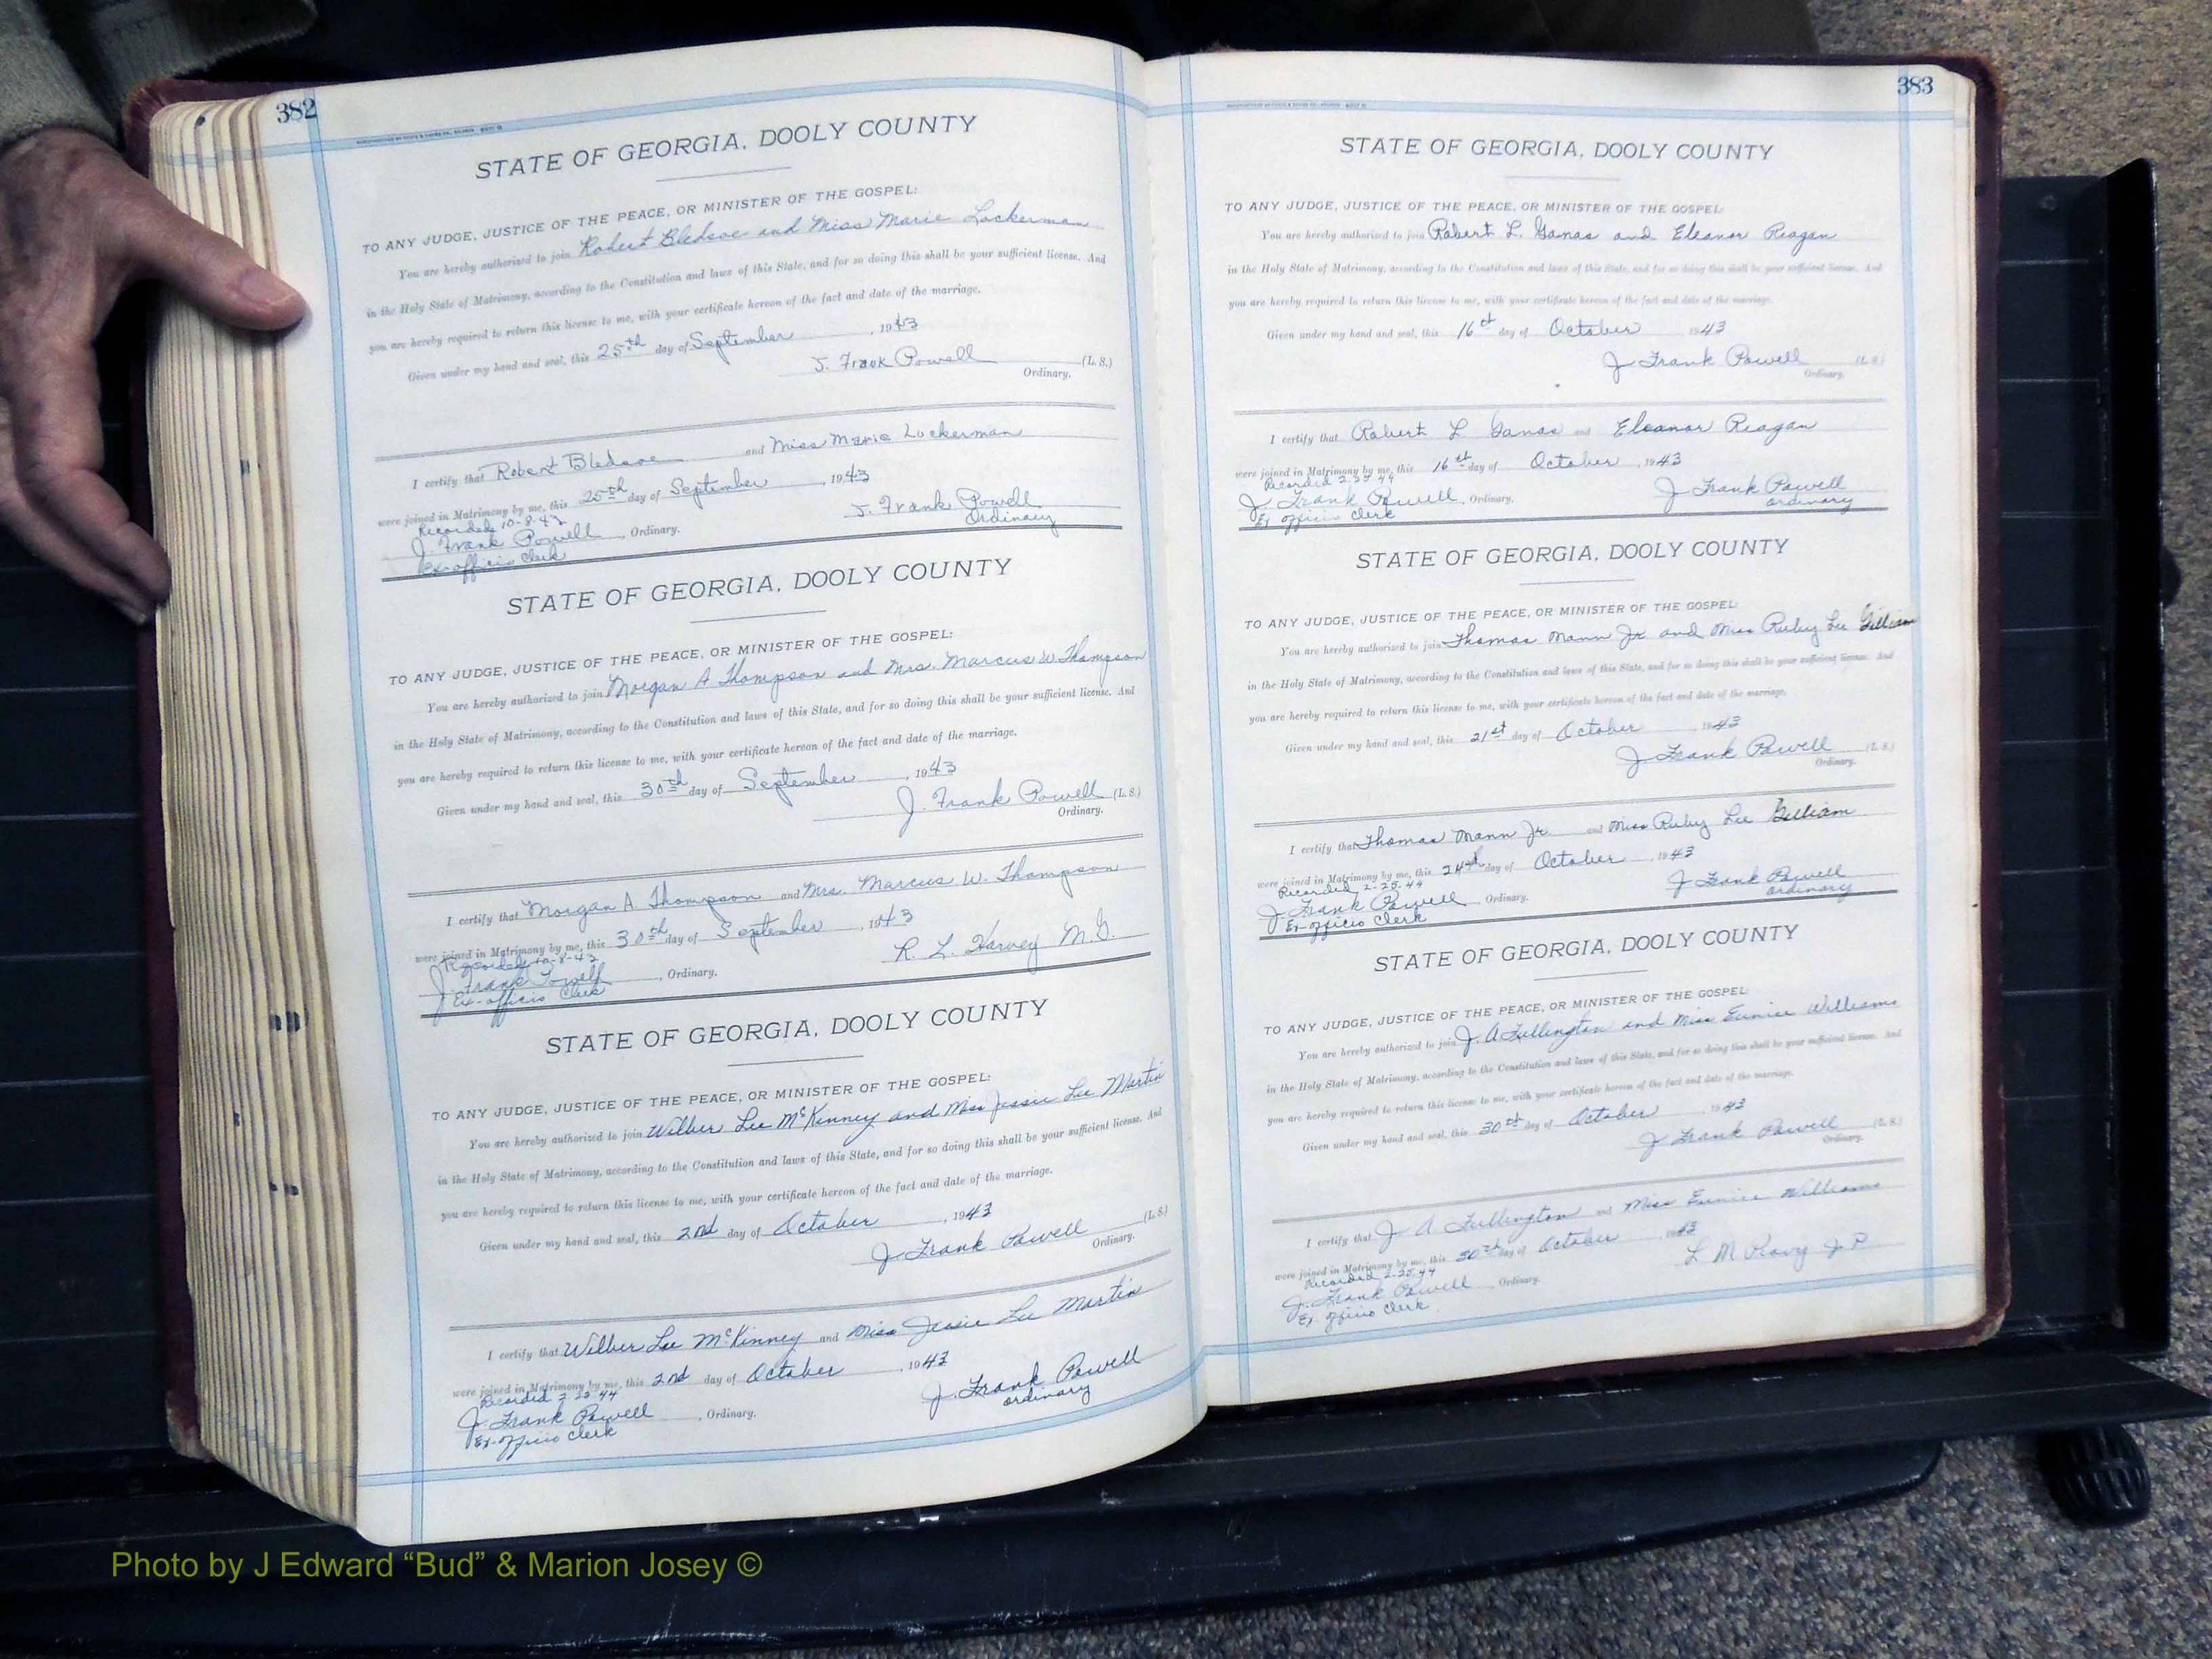 382
STATE OF GEORGIA, DOOLY COUNTY
TO ANY JUDGE, JUSTICE OF THE PEACE, OR MINISTER OF THE GOSPEL:
You are hereby authorized to join Robert Bledsoe and Miss Marie Lockerman
in the Holy State of Matrimony, according to the Constitution and laws of this State, and for so doing this shall be your sufficient license. And
you are hereby required to return this license to me, with your certificate hereon of the fact and date of the marriage.
Given under my hand and seal, this 25th day of September, 1943
J. Frank Powell (L. S.)
Ordinary.
I certify that Robert Bledsoe and Miss Marie Lockerman
were joined in Matrimony by me, this 25th day of September, 1943
Recorded 10-8-43
J. Frank Powell, Ordinary.
Ex-officio Clerk
J. Frank Powell
Ordinary
STATE OF GEORGIA, DOOLY COUNTY
TO ANY JUDGE, JUSTICE OF THE PEACE, OR MINISTER OF THE GOSPEL:
You are hereby authorized to join Morgan A Thompson and Mrs. Marcus W. Thompson
in the Holy State of Matrimony, according to the Constitution and laws of this State, and for so doing this shall be your sufficient license. And
you are hereby required to return this license to me, with your certificate hereon of the fact and date of the marriage.
Given under my hand and seal, this 30th day of September, 1943
J. Frank Powell (L. S.)
Ordinary.
I certify that Morgan A. Thompson and Mrs. Marcus W. Thompson
were joined in Matrimony by me, this 30th day of September, 1943
Recorded 10-8-43
J. Frank Powell, Ordinary.
Ex-officio Clerk
R. L. Harvey M.G.
STATE OF GEORGIA, DOOLY COUNTY
TO ANY JUDGE, JUSTICE OF THE PEACE, OR MINISTER OF THE GOSPEL:
You are hereby authorized to join Wilber Lee McKinney and Miss Jessie Lee Martin
in the Holy State of Matrimony, according to the Constitution and laws of this State, and for so doing this shall be your sufficient license. And
you are hereby required to return this license to me, with your certificate hereon of the fact and date of the marriage.
Given under my hand and seal, this 2nd day of October, 1943
J. Frank Powell (L. S.)
Ordinary.
I certify that Wilber Lee McKinney and Miss Jessie Lee Martin
were joined in Matrimony by me, this 2nd day of October, 1943
Recorded
J. Frank Powell, Ordinary.
Ex-officio Clerk
J. Frank Powell
ordinary
383
STATE OF GEORGIA, DOOLY COUNTY
TO ANY JUDGE, JUSTICE OF THE PEACE, OR MINISTER OF THE GOSPEL:
You are hereby authorized to join Robert L. Ganas and Eleanor Reagan
in the Holy State of Matrimony, according to the Constitution and laws of this State, and for so doing this shall be your sufficient license. And
you are hereby required to return this license to me, with your certificate hereon of the fact and date of the marriage.
Given under my hand and seal, this 16th day of October 1943
J Frank Powell (L. S.)
Ordinary.
I certify that Robert L Ganas and Eleanor Reagan
were joined in Matrimony by me, this 16th day of October, 1943
Recorded 2-25-44
J. Frank Powell, Ordinary.
Ex officio Clerk
J Frank Powell
ordinary
STATE OF GEORGIA, DOOLY COUNTY
TO ANY JUDGE, JUSTICE OF THE PEACE, OR MINISTER OF THE GOSPEL:
You are hereby authorized to join Thomas Mann Jr and Miss Ruby Lee Gilliam
in the Holy State of Matrimony, according to the Constitution and laws of this State, and for so doing this shall be your sufficient license. And
you are hereby required to return this license to me, with your certificate hereon of the fact and date of the marriage.
Given under my hand and seal, this 21st day of October, 1943
J Frank Powell (L. S.)
Ordinary.
I certify that Thomas Mann Jr. and Miss Ruby Lee Gilliam
were joined in Matrimony by me, this 24th day of October, 1943
Recorded 2-25-44
J. Frank Powell, Ordinary.
Ex-officio Clerk
J Frank Powell
ordinary
STATE OF GEORGIA, DOOLY COUNTY
TO ANY JUDGE, JUSTICE OF THE PEACE, OR MINISTER OF THE GOSPEL:
You are hereby authorized to join J. A Fullington and Miss Eunice Williams
in the Holy State of Matrimony, according to the Constitution and laws of this State, and for so doing this shall be your sufficient license. And
you are hereby required to return this license to me, with your certificate hereon of the fact and date of the marriage.
Given under my hand and seal, this 30th day of October, 1943
J Frank Powell (L. S.)
Ordinary.
I certify that J A Fullington and Miss Eunice Williams
were joined in Matrimony by me, this 30th day of October, 1943
Recorded 2-25-44
J. Frank Powell, Ordinary.
Ex officio Clerk
L M J P
Photo by J Edward “Bud” & Marion Josey ©